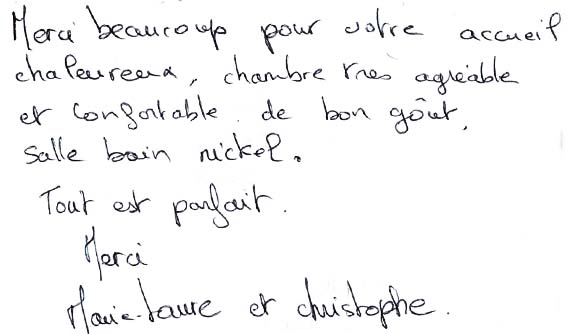 Merci beaucoup pour votre accueil
chaleureux, chambre très agréable
et confortable. de bon goût,
salle bain nickel.
Tout est parfait.
Merci
Marie-Laure et christophe.